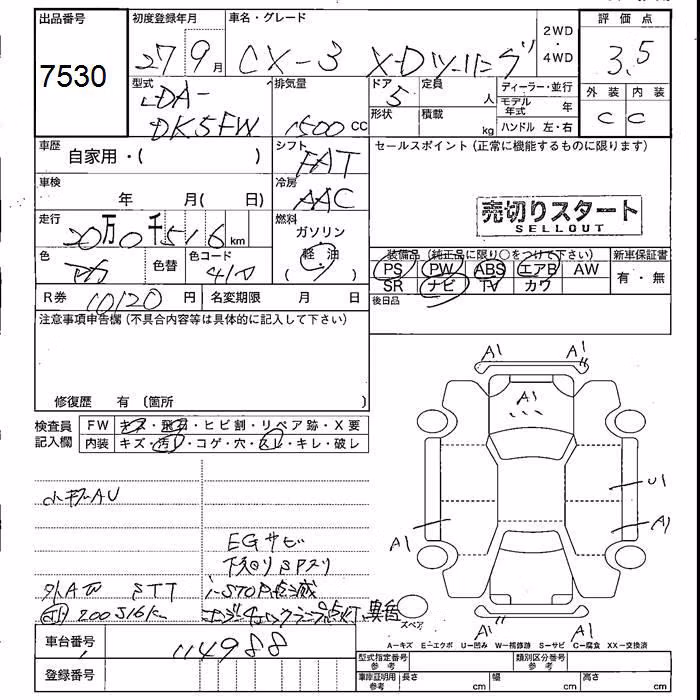 出品番号
7530
初度登録年月
27 9月
車名・グレード
CX-3 X-Dツーリング
2WD
・
4WD
評価点
3.5
外装 内装
C C
型式
LDA-
DK5FW
排気量
1500 cc
ドア
5
定員
人
形状
積載
kg
ディーラー・並行
モデル年式 年
ハンドル 左・右
車歴
自家用・( )
シフト
FAT
セールスポイント (正常に機能するものに限ります)
車検
年 月( 日)
冷房
AAC
売切りスタート
SELLOUT
走行
20万0千516km
燃料
ガソリン
軽油
( )
色
色替
色コード
41W
装備品 (純正品に限り○をつけて下さい)
PS PW ABS エアB AW
SR ナビ TV カワ
新車保証書
有・無
後日品
R券 10120円
名変期限 月 日
注意事項申告欄 (不具合内容等は具体的に記入して下さい)
修復歴 有 (箇所 )
検査員記入欄
FW キズ・飛石・ヒビ割・リペア跡・X要
内装 キズ・汚レ・コゲ・穴・スレ・キレ・破レ
小キズAU
EGサビ
下回りSアリ
外A STT
i-STOP点滅
200516K
エンジンチェックランプ点灯,異音
A1 A1
A1
U1
A1 A1
A1
スペア
A1
A-キズ E-エクボ U-凹み W-補修跡 S-サビ C-腐食 XX-交換済
車台番号
114988
登録番号
型式指定番号 参考
類別区分番号 参考
車庫証明用 参考
長さ cm
幅 cm
高さ cm